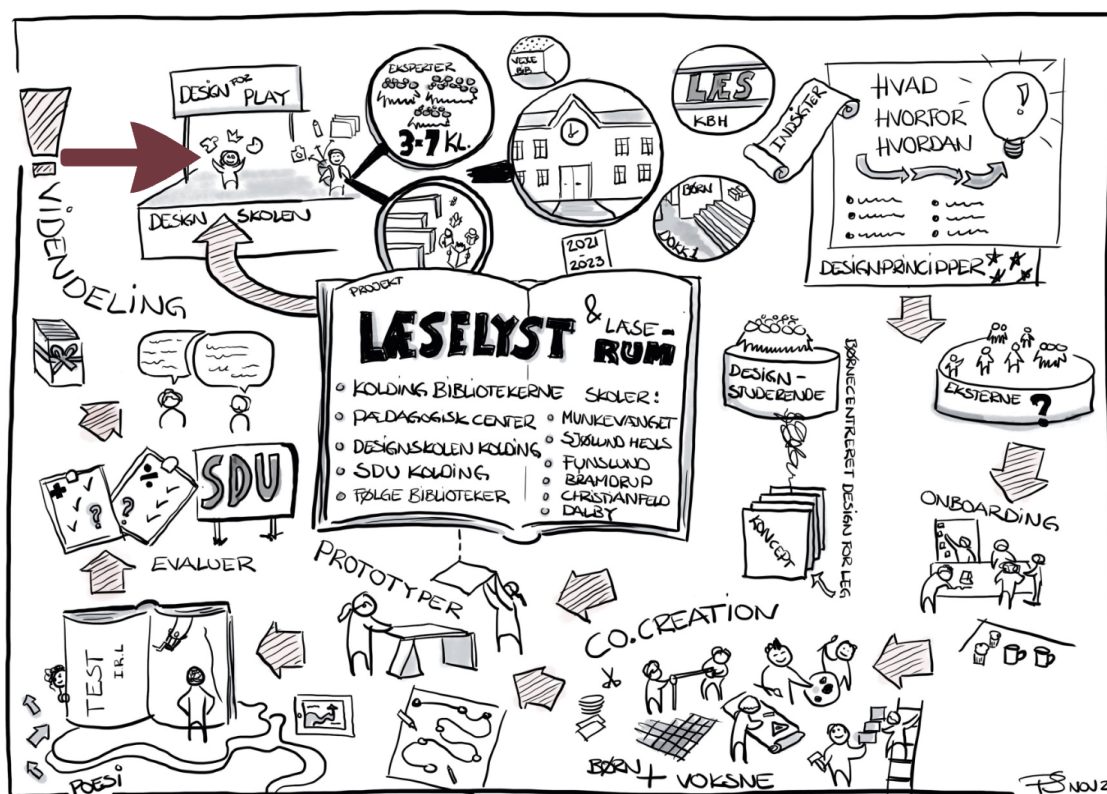 DESIGN FOR PLAY
DESIGN SKOLEN
EKSPERTER
3-7 KL.
VEJLE
BIB
LÆS
KBH
BØRN
DOKK1
2021
- 2023
INDSIGTER
HVAD
HVORFOR
HVORDAN
DESIGNPRINCIPPER
VIDENDELING
PROJEKT
LÆSELYST
& LÆSE-
RUM
KOLDING BIBLIOTEKERNE
PÆDAGOGISK CENTER
DESIGNSKOLEN KOLDING
SDU KOLDING
FØLGE BIBLIOTEKER
SKOLER:
MUNKEVÆNGET
SJØLUND HEJLS
FYNSLUND
BRAMDRUP
CHRISTIANFELD
DALBY
DESIGN-
STUDERENDE
KONCEPT
BØRNECENTRERET DESIGN FOR LEG
EKSTERNE ?
ONBOARDING
CO.CREATION
BØRN + VOKSNE
PROTOTYPER
TEST
I.R.L
POESI
EVALUER
SDU
+ ?
÷ ?
NOV 2